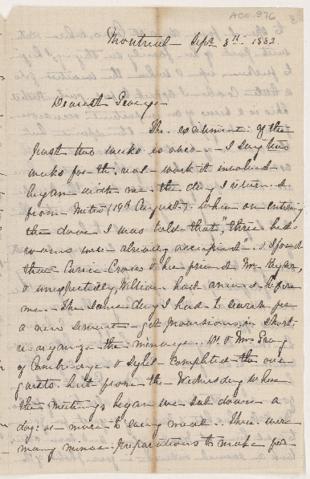 ACC. 976
Montreal - Sept 3rd. 1882
Dearest George -
The excitement of the
past two weeks is over - I say two
weeks for the real work it involved
began with me the day I returned
from Metis (19th August). When on entering
the door I was told that, "three bed-
rooms were already occupied" - I found
there Carrie Cronas & her friend Mr.
& unexpectedly, William had arrived before
me. The same day I had to search for
a new servant - get provisions in, short-
reorganize the menage. W. & Mrs Gray
of Cambridge & completed the
guests but from the Wednesday when
the meetings began we sat down a
day: so much to carry round. There were
many minor preparations to make for